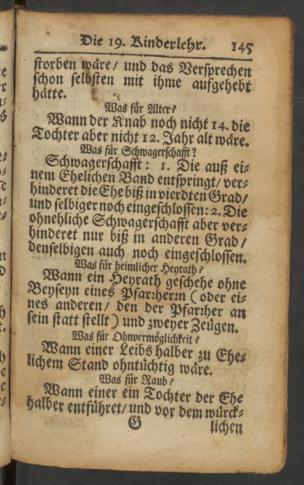 Die 19. Kinderlehr. 145
storben wäre/ und das Versprechen
schon selbsten mit ihme aufgehebt
hätte.
Was für Alter?
Wann der Knab noch nicht 14. die
Tochter aber nicht 12. Jahr alt wäre.
Was für Schwagerschafft?
Schwagerschafft: 1. Die auß ei-
nem Ehelichen Band entspringt/ ver-
hinderet die Ehe biß in vierdten Grad/
und selbiger noch eingeschlossen: 2. Die
ohnehliche Schwagerschafft aber ver-
hinderet nur biß in anderen Grad/
denselbigen auch noch eingeschlossen.
Was für heimlicher Heyrath?
Wann ein Heyrath geschehe ohne
Beyseyn eines Pfarrherrn (oder ei-
nes anderen/ den der Pfarrher an
sein statt stellt) und zweyer Zeügen.
Was für Ohnvermöglichkeit?
Wann einer Leibs halber zu Ehe-
lichem Stand ohntüchtig wäre.
Was für Raub?
Wann einer ein Tochter der Ehe
halber entführet/ und vor dem würck-
G lichen